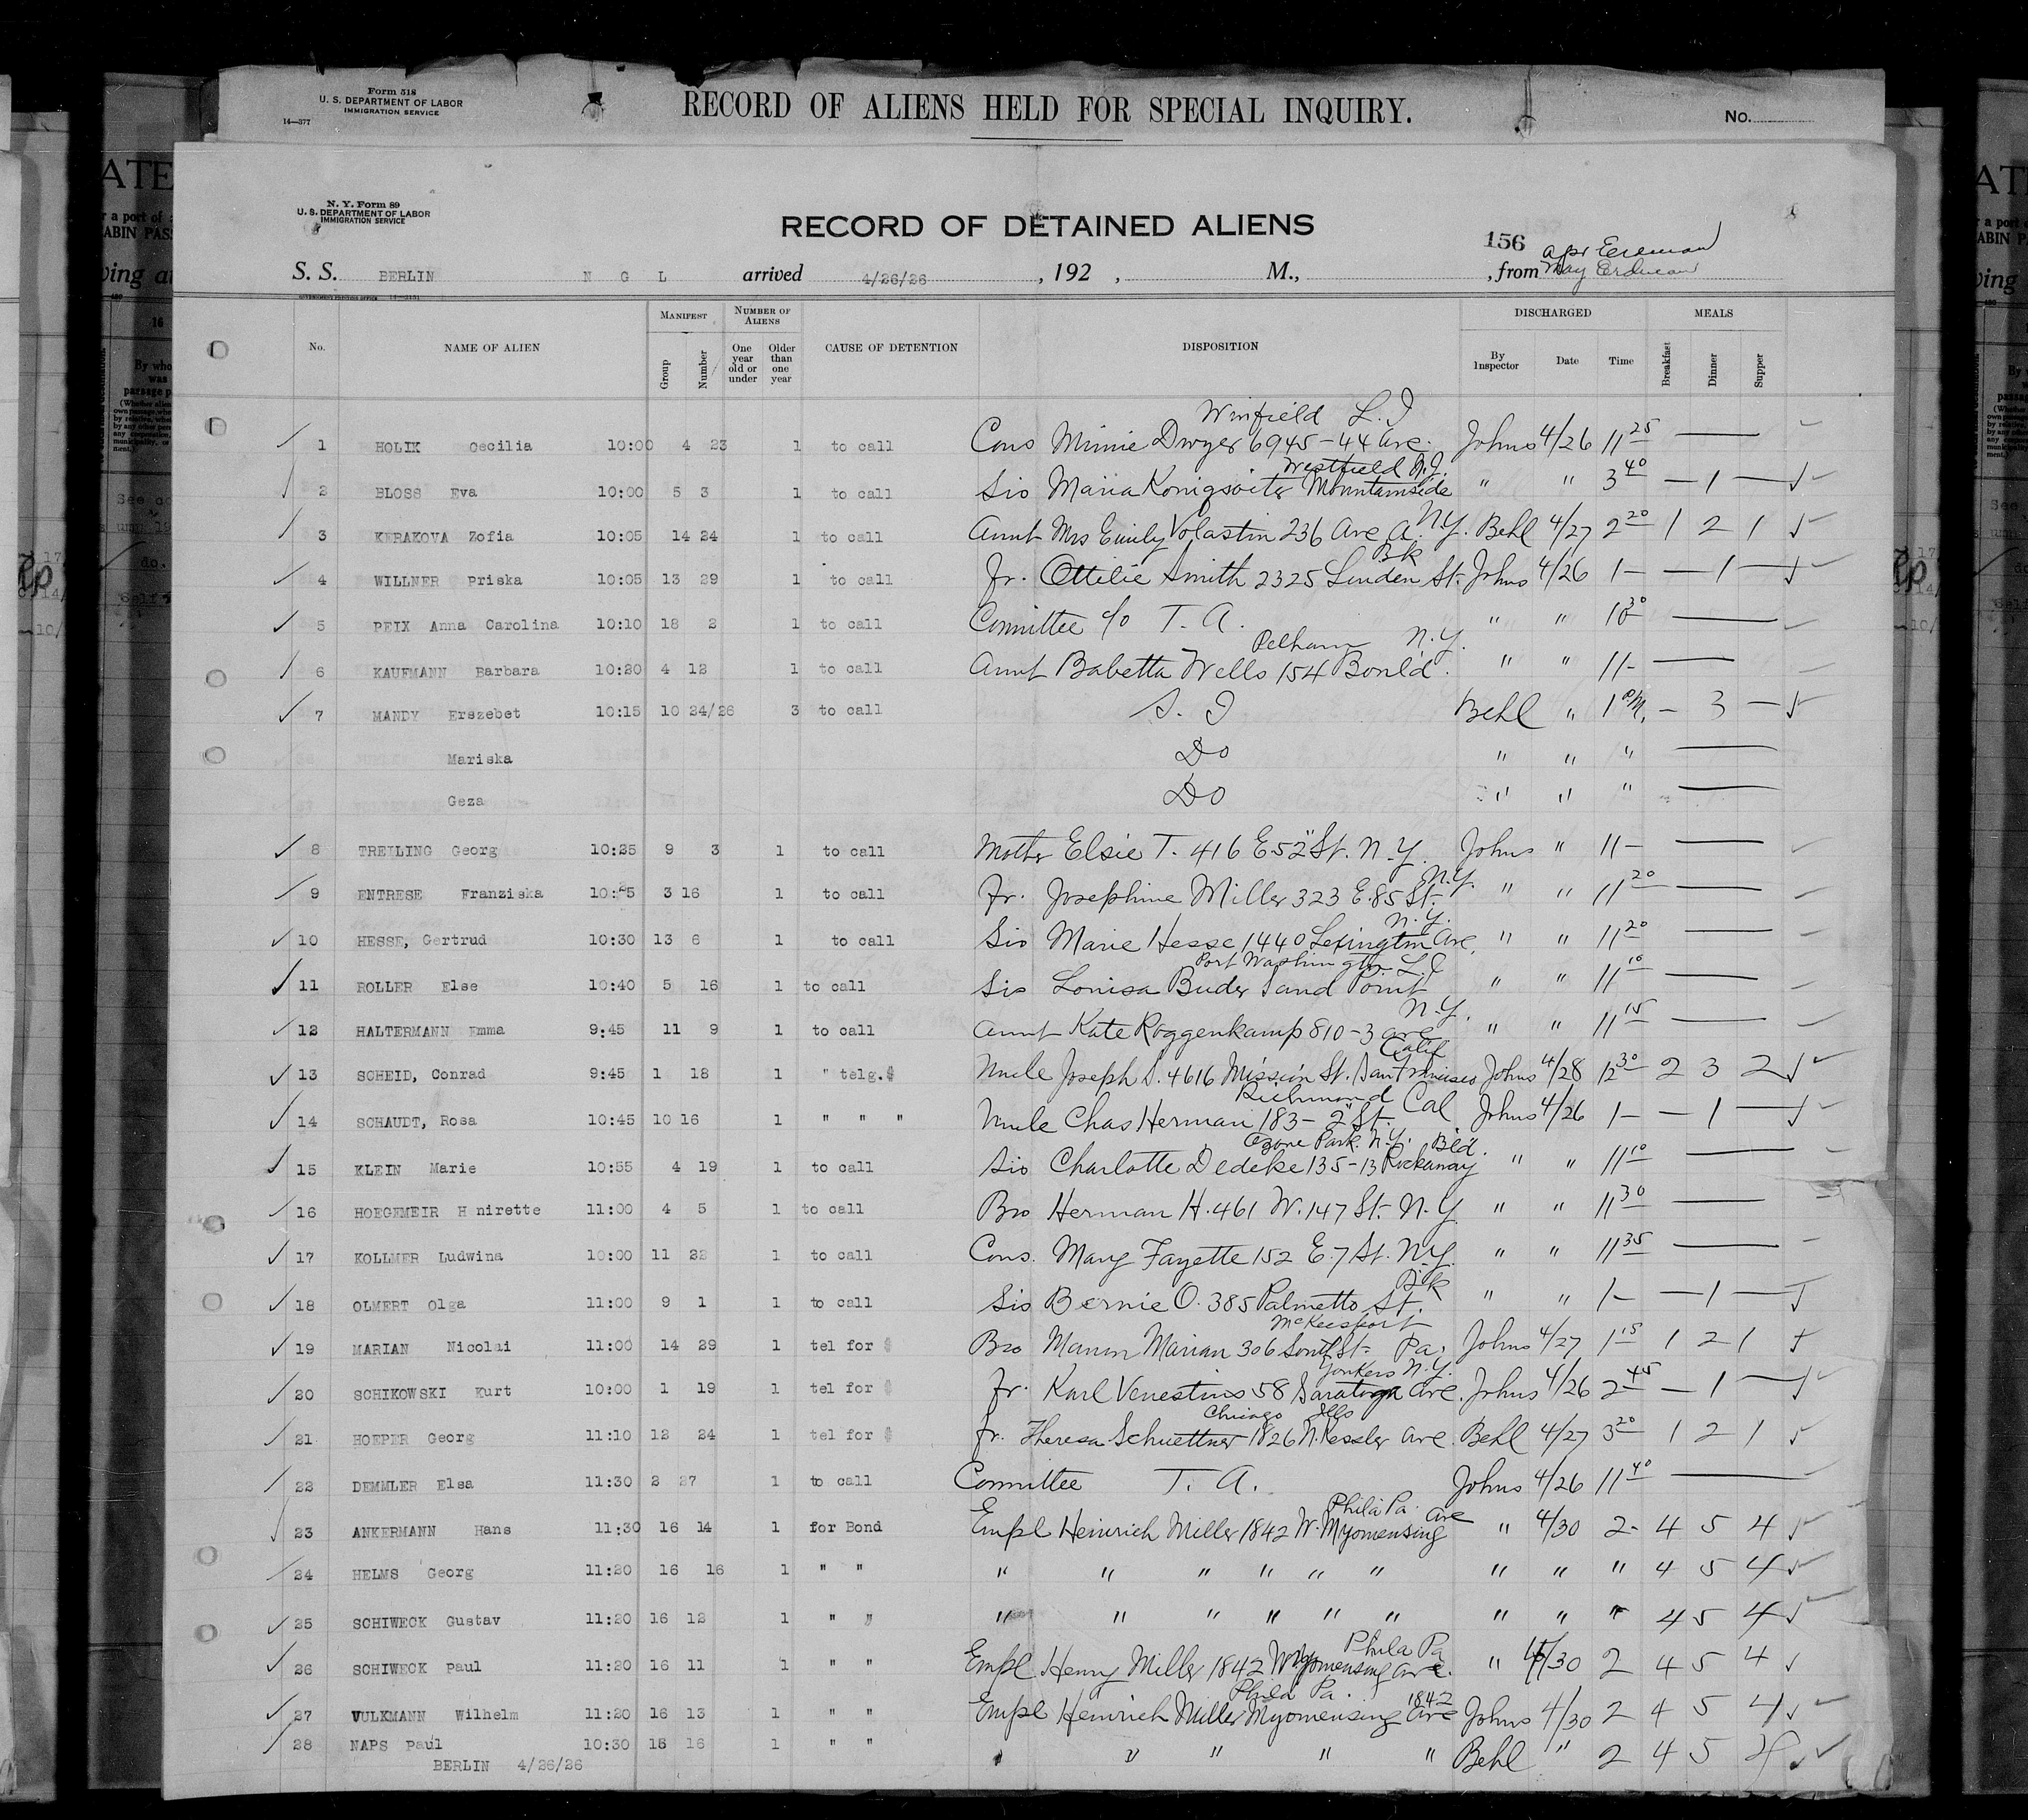 Form 518
U. S. DEPARTMENT OF LABOR
IMMIGRATION SERVICE
14—377
RECORD OF ALIENS HELD FOR SPECIAL INQUIRY.
No.
N. Y. Form 89
U. S. DEPARTMENT OF LABOR
IMMIGRATION SERVICE
RECORD OF DETAINED ALIENS
156
S. S. BERLIN N G L arrived 4/26/26, 192 , M., , from
No. NAME OF ALIEN MANIFEST Group Number NUMBER OF ALIENS One year old or under Older than one year CAUSE OF DETENTION DISPOSITION DISCHARGED By Inspector Date Time MEALS Breakfast Dinner Supper
Winfield L. I
1 HOLIK Cecilia 10:00 4 23 1 to call Cons Minnie Dwyer 6945-44 Ave. Johns 4/26 11 25 —
Westfield N.J.
2 BLOSS Eva 10:00 5 3 1 to call Sis Maria Mountainside " " 3 40 — 1 —
3 KERAKOVA Zofia 10:05 14 24 1 to call Aunt Mrs Emily Volastin 236 Ave A. N.Y. Behl 4/27 2 20 1 2 1
Bk
4 WILLNER Priska 10:05 13 29 1 to call Fr. Ottilie Smith 2325 Linden St. Johns 4/26 1— — 1 —
5 PEIX Anna Carolina 10:10 18 2 1 to call Committee c/o T. A. " " 10 30 —
Pelham N.Y.
6 KAUFMANN Barbara 10:20 4 12 1 to call Aunt Babetta Wells 154 Bould. " " 11- —
7 MANDY Erszebet 10:15 10 24/26 3 to call S. I Behl " 1 P.M. — 3 —
Mariska Do " " " —
Geza Do " " " —
8 TREILING Georg 10:25 9 3 1 to call Mother Elsie T. 416 E 52" St. N.Y. Johns " 11— —
9 ENTRESE Franziska 10:25 3 16 1 to call Fr. Josephine Miller 323 E. 85 St. N.Y. " " 11 20 —
N.Y.
10 HESSE, Gertrud 10:30 13 6 1 to call Sis Marie Hesse 1440 Lexington Ave. " " 11 20 —
Port Washington L.I
11 ROLLER Else 10:40 5 16 1 to call Sis Louisa Buder Sand Point " " 11 10 —
N.Y.
12 HALTERMANN Emma 9:45 11 9 1 to call Aunt Kate Roggenkamp 810-3 ave " " 11 15 —
Calif
13 SCHEID, Conrad 9:45 1 18 1 " telg.$ Uncle Joseph S. 4616 Mission St. San Francisco Johns 4/28 12 30 2 3 2
Richmond Cal
14 SCHAUDT, Rosa 10:45 10 16 1 " " " Uncle Chas Herman 183-2" St. Johns 4/26 1— — 1 —
Ozone Park N.Y. Bld.
15 KLEIN Marie 10:55 4 19 1 to call Sis Charlotte Dedeke 135-13 Rockaway " " 11 10 —
16 HOEGEMEIR H nirette 11:00 4 5 1 to call Bro Herman H. 461 W. 147 St. N.Y. " " 11 30 —
17 KOLLMER Ludwina 10:00 11 22 1 to call Cons. Mary Fayette 152 E. 7 St. N.Y. " " 11 35 —
Bk
18 OLMERT Olga 11:00 9 1 1 to call Sis Bernie O. 385 Palmetto St. " " 1— — 1 —
McKeesport
19 MARIAN Nicolai 11:00 14 29 1 tel for $ Bro Marian 306 South St. Pa. Johns 4/27 1 15 1 2 1
Yonkers N.Y.
20 SCHIKOWSKI Kurt 10:00 1 19 1 tel for $ Fr. Karl Venestins 58 Saratoga Ave. Johns 4/26 2 45 — 1 —
Chicago Ills
21 HOEPER Georg 11:10 12 24 1 tel for $ Fr. Theresa Schuettner 1826 N. Kessler Ave. Behl 4/27 3 20 1 2 1
22 DEMMLER Elsa 11:30 2 27 1 to call Committee T. A. Johns 4/26 11 40 —
Phila Pa. Ave
23 ANKERMANN Hans 11:30 16 14 1 for Bond Empl Heinrich Miller 1842 W. Myomensing " 4/30 2- 4 5 4
24 HELMS Georg 11:20 16 16 1 " " " " " " " " " " " 4 5 4
25 SCHIWECK Gustav 11:20 16 12 1 " " " " " " " " " " " 4 5 4
Phila Pa
26 SCHIWECK Paul 11:20 16 11 1 " " Empl Henry Miller 1842 Wyomensing Ave. " 4/30 2 4 5 4
Phila Pa. 1842
27 VULKMANN Wilhelm 11:20 16 13 1 " " Empl Heinrich Miller Myomensing Ave Johns 4/30 2 4 5 4
28 NAPS Paul 10:30 15 16 1 " " " " " " " Behl " 2 4 5 4
BERLIN 4/26/26